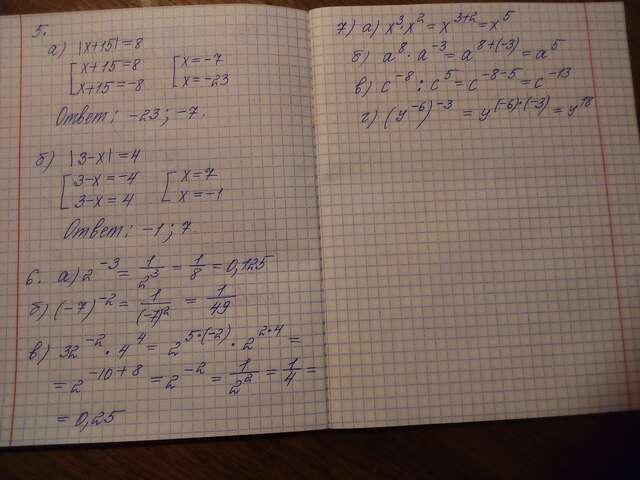 5.
а) |x+15|=8
[x+15=8 [x=-7
[x+15=-8 [x=-23
Ответ: -23; -7.
б) |3-x|=4
[3-x=-4 [x=7
[3-x=4 [x=-1
Ответ: -1; 7.
6. а) 2^-3 = 1/2^3 = 1/8 = 0,125
б) (-7)^-2 = 1/(-7)^2 = 1/49
в) 32^-2 · 4^4 = 2^5·(-2) · 2^2·4 =
= 2^-10+8 = 2^-2 = 1/2^2 = 1/4 =
= 0,25
7) а) x^3 · x^2 = x^3+2 = x^5
б) a^8 · a^-3 = a^8+(-3) = a^5
в) c^-8 : c^5 = c^-8-5 = c^-13
г) (y^-6)^-3 = y^(-6)·(-3) = y^18